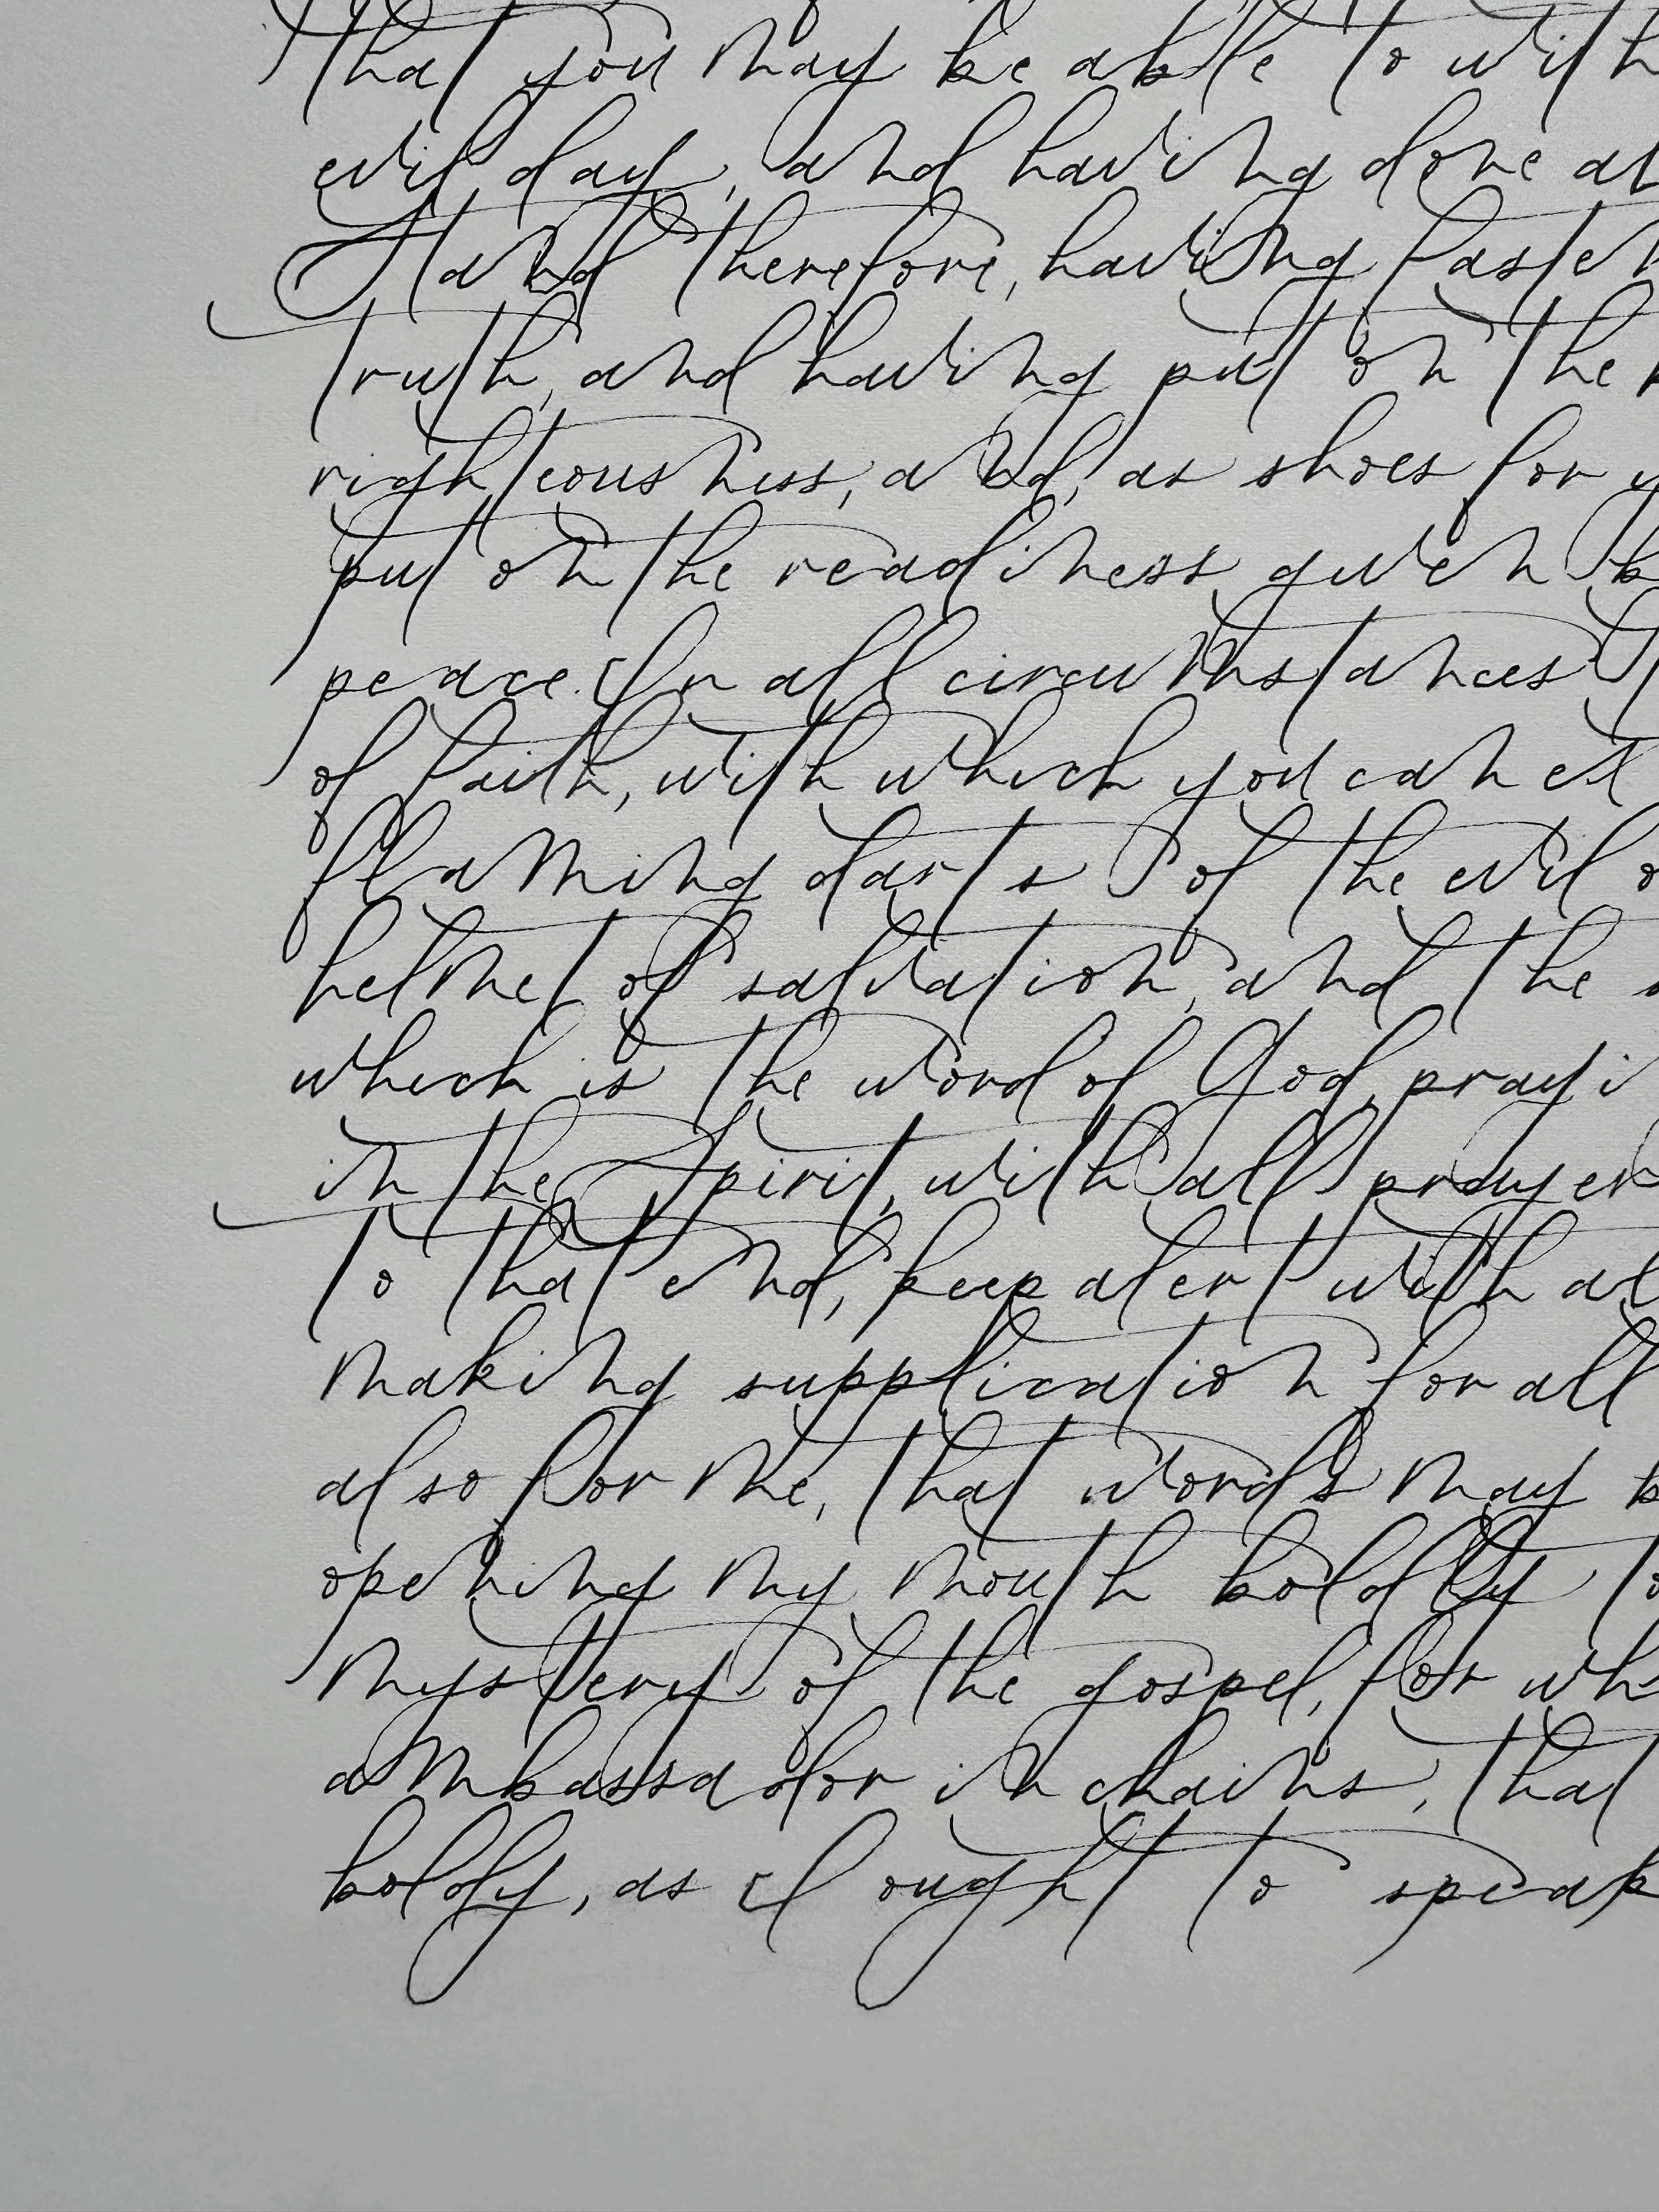 that you may be able to with
evil day, and having done al
Stand therefore, having fasten
truth, and having put on the
righteousness, and, as shoes for y
put on the readiness given b
peace. In all circumstances
of faith, with which you can ex
flaming darts of the evil o
helmet of salvation, and the s
which is the word of God, prayi
in the Spirit, with all prayer
To that end, keep alert with al
making supplication for all
also for me, that words may b
opening my mouth boldly to
mystery of the gospel, for wh
ambassador in chains, that
boldy, as I ought to speak